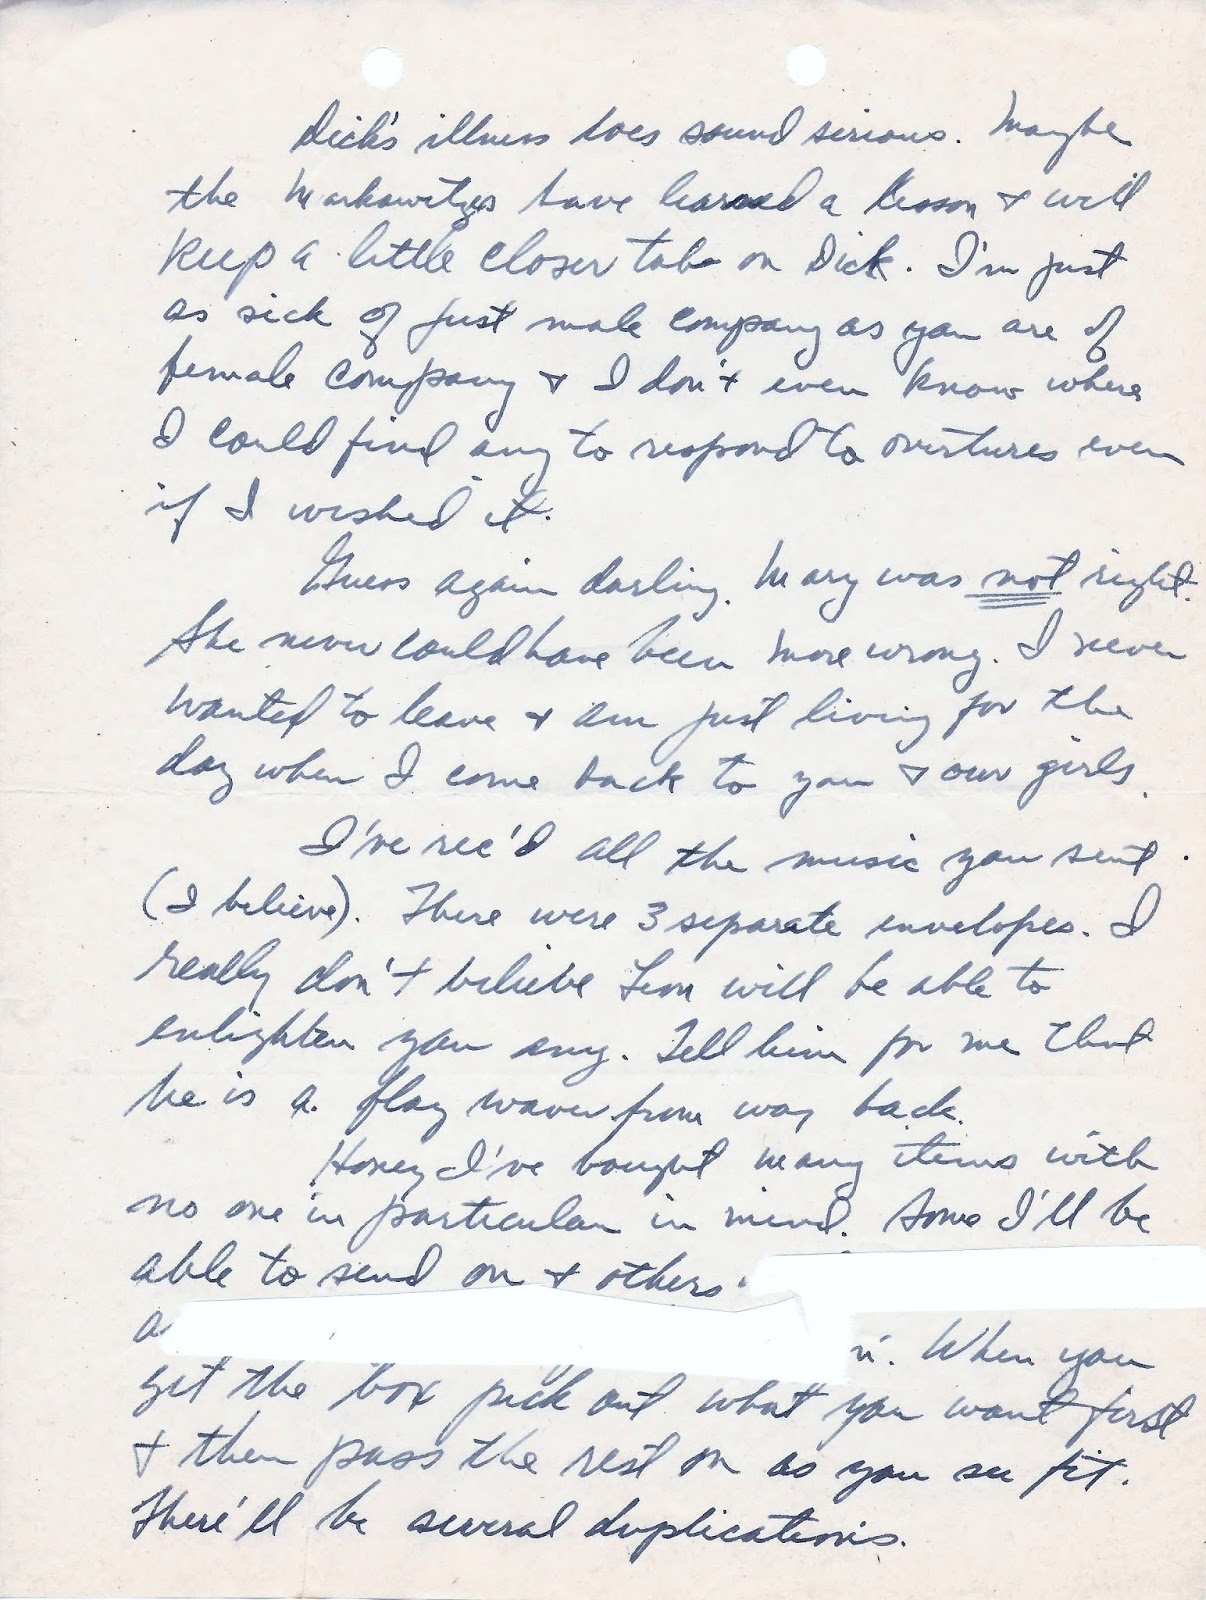 Dick's illness does sound serious. Maybe
the Markowitzes have learned a lesson & will
keep a little closer tab on Dick. I'm just
as sick of just male company as you are of
female company & I don't even know where
I could find any to respond to overtures even
if I wished it.
Guess again darling. Mary was not right.
She never could have been more wrong. I never
wanted to leave & am just living for the
day when I come back to you & our girls.
I've rec'd all the music you sent.
(I believe). There were 3 separate envelopes. I
really don't believe Leon will be able to
enlighten you any. Tell him for me that
he is a flag waver from way back.
Honey I've bought many items with
no one in particular in mind. Some I'll be
able to send on & others
When you
get the box pick out what you want first
& then pass the rest on as you see fit.
There'll be several duplications.